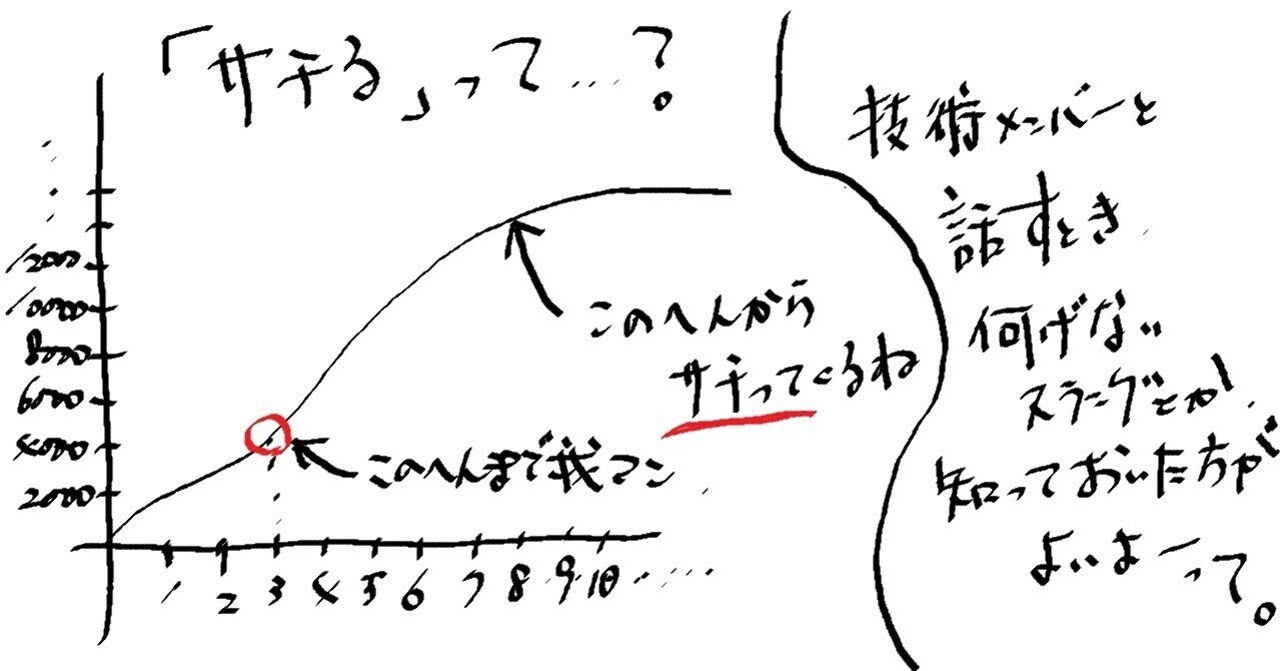 「サチる」って…?
12000
10000
8000
6000
4000
2000
1 2 3 4 5 6 7 8 9 10 ……
このへんから
サチってくるね
このへんまで我マン
技術メンバーと
話すとき
何げない
スラングとか、
知っておいた方が
よいよーって。